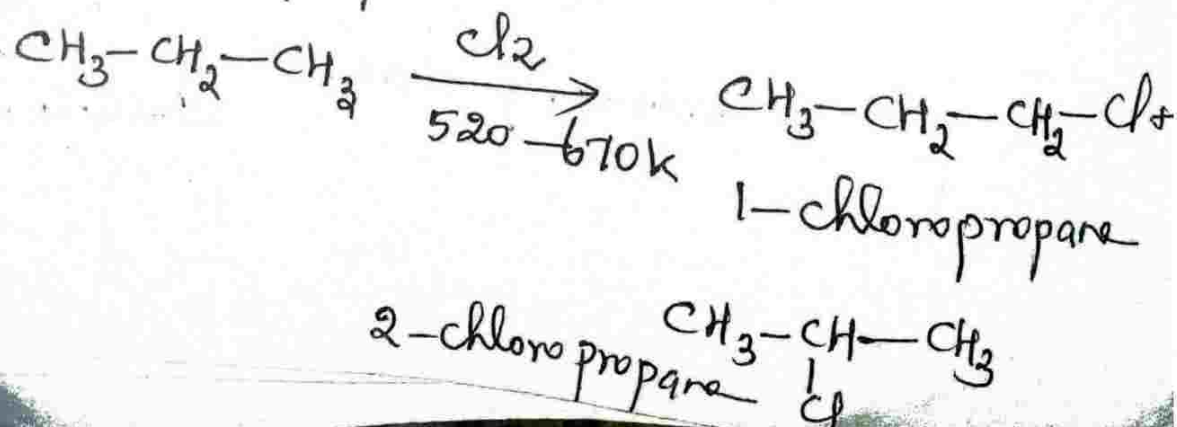 CH₃-CH₂-CH₃ Cl₂ 520-670K CH₃-CH₂-CH₂-Cl+
1-chloropropane
2-chloropropane CH₃-CH-CH₃
Cl